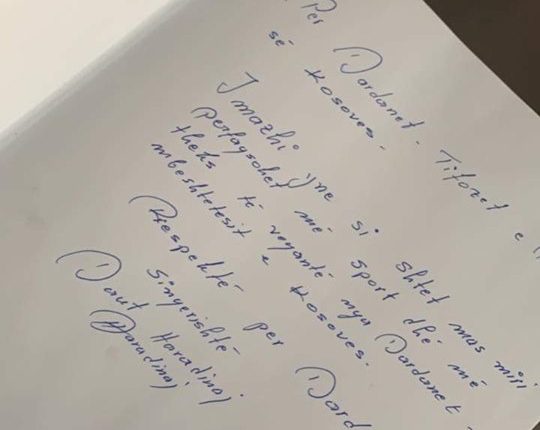 Per Dardanet - Tifozet e
së Kosoves.
Imazhi jne si shtet mas miri
perfaqsohet me sport dhe me
theks të veqantë nga Dardanet -
mbeshtetesit e Kosoves.
Respektë per Dard
Singerishtë
Daut Haradinaj
Haradinaj